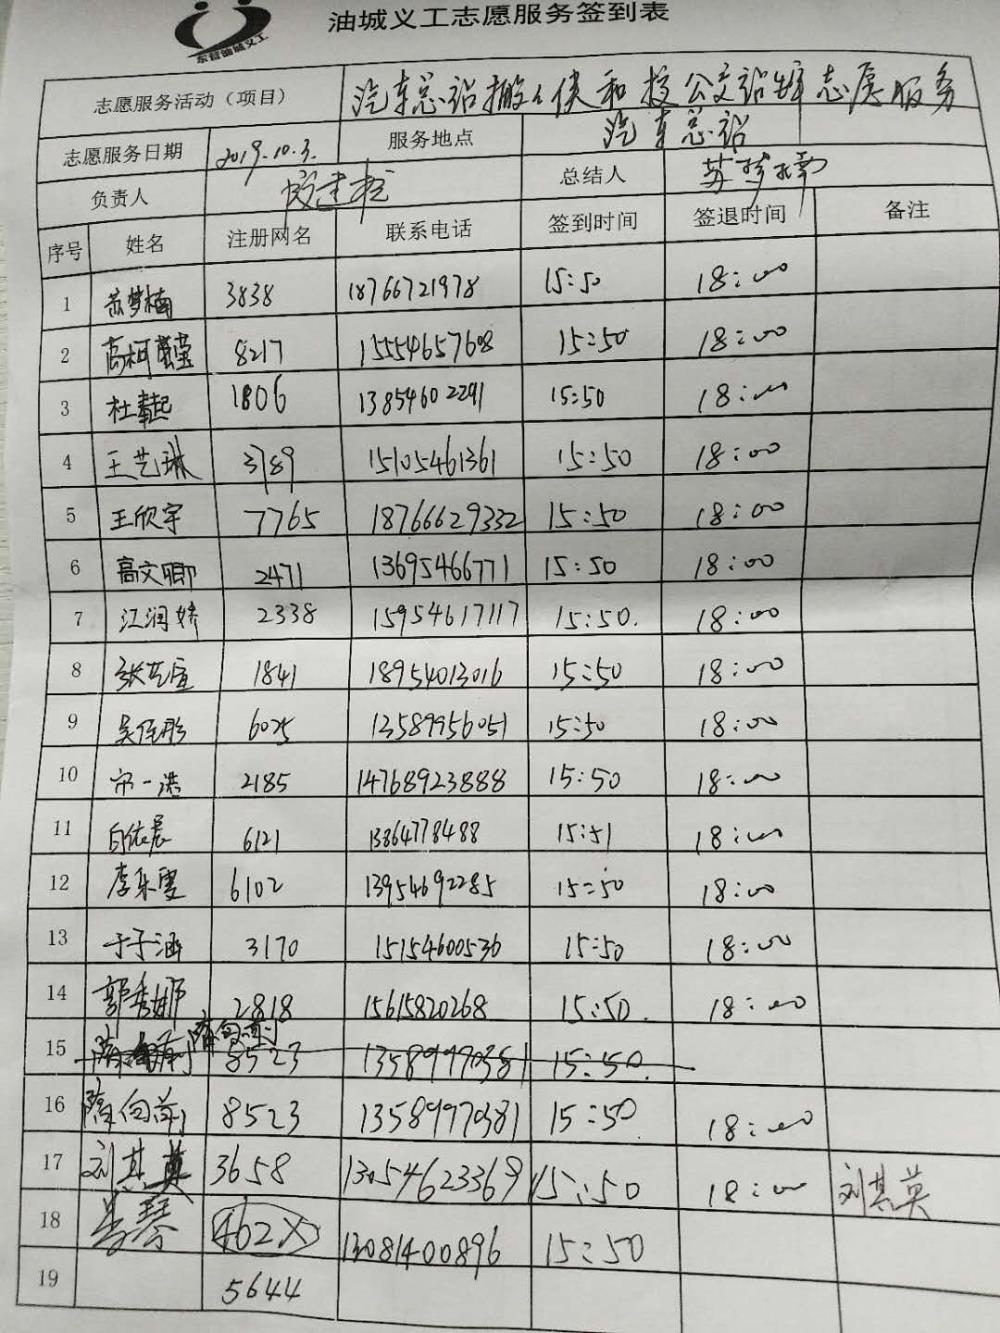 油城义工志愿服务签到表
东营油城义工
志愿服务活动（项目） 汽车总站搬 侠和 公交站牌志愿服务
志愿服务日期 2019.10.3. 服务地点 汽车总站
负责人 总结人 苏梦楠
序号 姓名 注册网名 联系电话 签到时间 签退时间 备注
1 苏梦楠 3838 18766721978 15:50 18:00
2 高柯莹莹 8217 15554657608 15:50 18:00
3 杜 起 1806 13854602291 15:50 18:00
4 王艺琳 3789 15105461361 15:50 18:00
5 王欣宇 7765 18766629332 15:50 18:00
6 高文卿 2471 13695466771 15:50 18:00
7 江润娇 2338 15954617117 15:50. 18:00
8 张艺宣 1841 18954013016 15:50 18:00
9 吴佳彤 6025 13589956051 15:50 18:00
10 宋一浩 2185 14768923888 15:50 18:00
11 白依晨 6121 13864778488 15:51 18:00
12 李乐雯 6102 13954692285 15:50 18:00
13 于子涵 3170 15154600536 15:50 18:00
14 郭秀娜 2818 15615820268 15:50. 18:00
15 隋向前 8523 13589970381 15:50.
16 隋向前 8523 13589970381 15:50 18:00
17 刘其英 3658 13054623369 15:50 18:00 刘其英
18 琴 462X 13081400896 15:50
19 5644